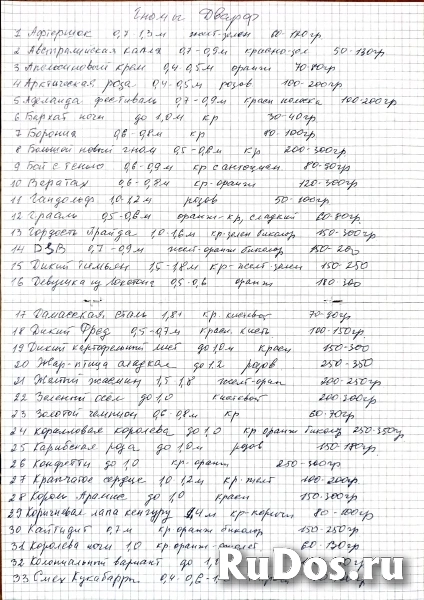 Гномы Дварф
1 Афтершок 0,7 1,3м желт-зелен 60-170гр
2 Австралийская капля 0,7-0,9м красно-зел 50-130гр
3 Апельсиновый крем 0,4 0,5м оранж 40-80гр
4 Арктическая роза 0,4-0,5м розов 100-200гр
5 Аделаида фестиваль 0,7-0,9м красн полоска 100-200гр
6 Бархат ночи до 1,0м кр 30-40гр
7 Борония 0,6-0,8м кр 80-100гр
8 Большой новый гном 0,5-0,8м кр 200-300гр
9 Бой с тенью 0,6-0,9м кр с антоциан 80-90гр
10 Вератах 0,6-0,8м кр-оранж 120-300гр
11 Гандольф 10-12м розов 50-100гр
12 Грааль 0,5-0,6м оранж-кр, сладкий 60-80гр
13 Гордость Прайда 1,0-1,6м кр-зелен биколор 150-300гр
14 DSB 0,7-0,9м желт-оранж биколор 150-200
15 Дикий Тимьян 1,5-1,8м кр-желт-зелен 150-250
16 Девушка из Локстона 0,5-0,6 оранж 180-300
17 Дамасская сталь 1,8+ кр кисневог 70-90гр
18 Дикий Фред 0,5-0,7м красн. кисть 100-150гр
19 Дикий картофельный лист до 1,0м красн 150-300
20 Жар-птица сладкая до 1,2 розов 250-350
21 Желтый жасмин 1,5 1,8 желт-оран 200-250гр
22 Зеленый осел до 1,0 200-300гр
23 Золотой чемпион 0,6-0,8м кр 60-70гр
24 коралловая королева до 1,0 кр оранж биколор 250-350гр
25 Карибская роза до 1,0м розов 150-180гр.
26 Конфетти до 1,0 кр-оранж 250-300гр
27 Крапчатое сердце 10 12м кр-желт 100-200гр
28 Король Арамис до 1,0 красн 150-300гр
29 Коричневая лапа кенгуру 1,4м кр-коричн 80-100гр
30 Кайтидит 0,7м кр оранж биколор 150-250гр
31 Королева ночи 1,0 кр оранж-фиолет 60-130гр
32 Колониальный вариант до 1,1
33 Смех Кукабарры 0,4-0,6-1